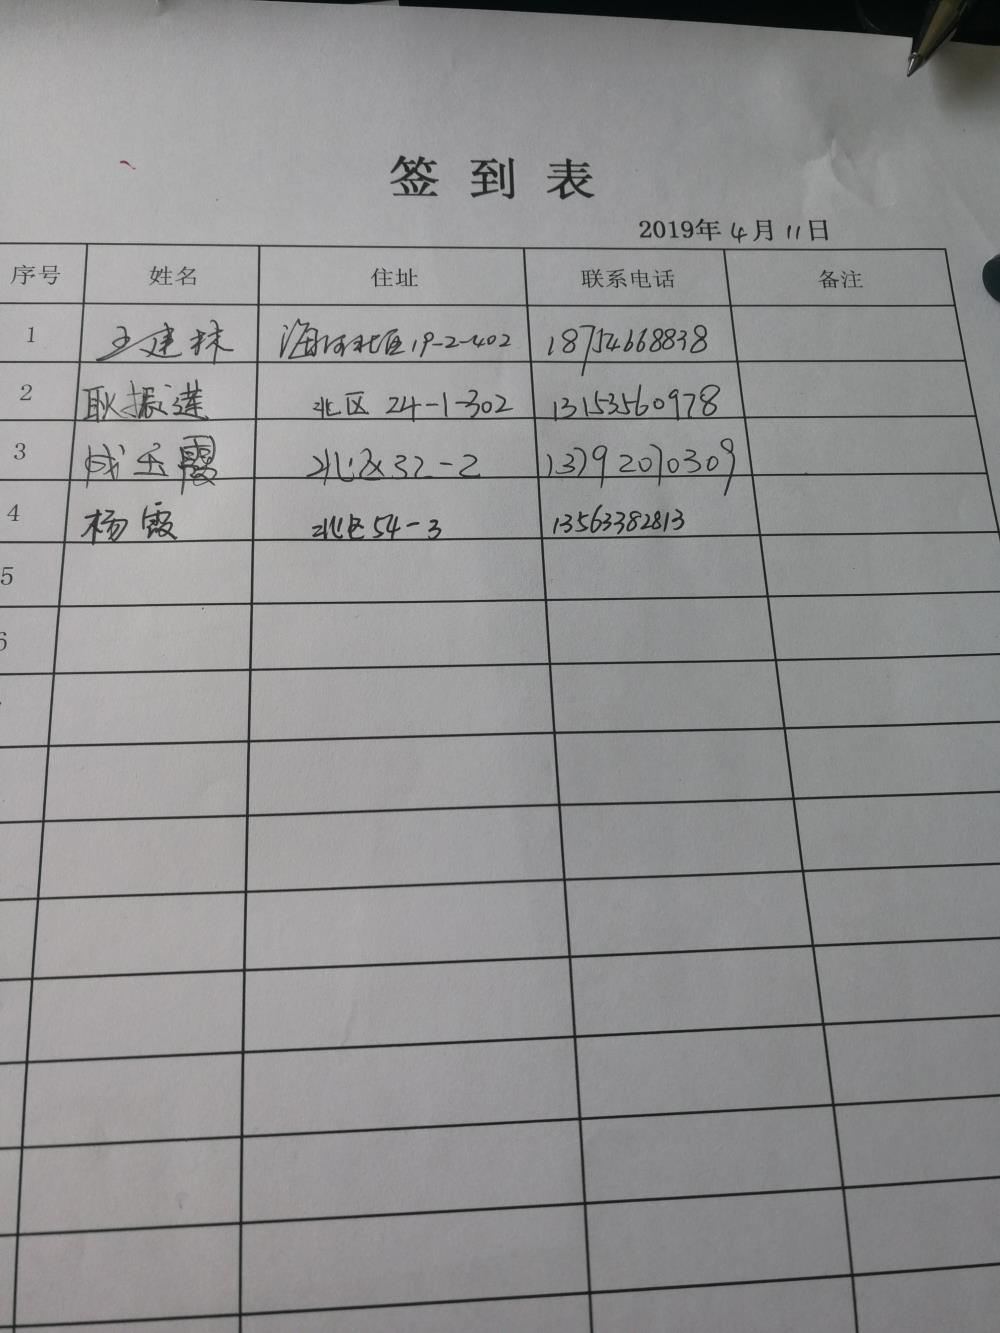 签到表
2019年4月11日
序号 姓名 住址 联系电话 备注
1 王建林 海河北区19-2-402 18754668838
2 耿振莲 北区 24-1-302 13153560978
3 成玉霞 北区32-2 13792070309
4 杨霞 北区54-3 13563382813
5
6